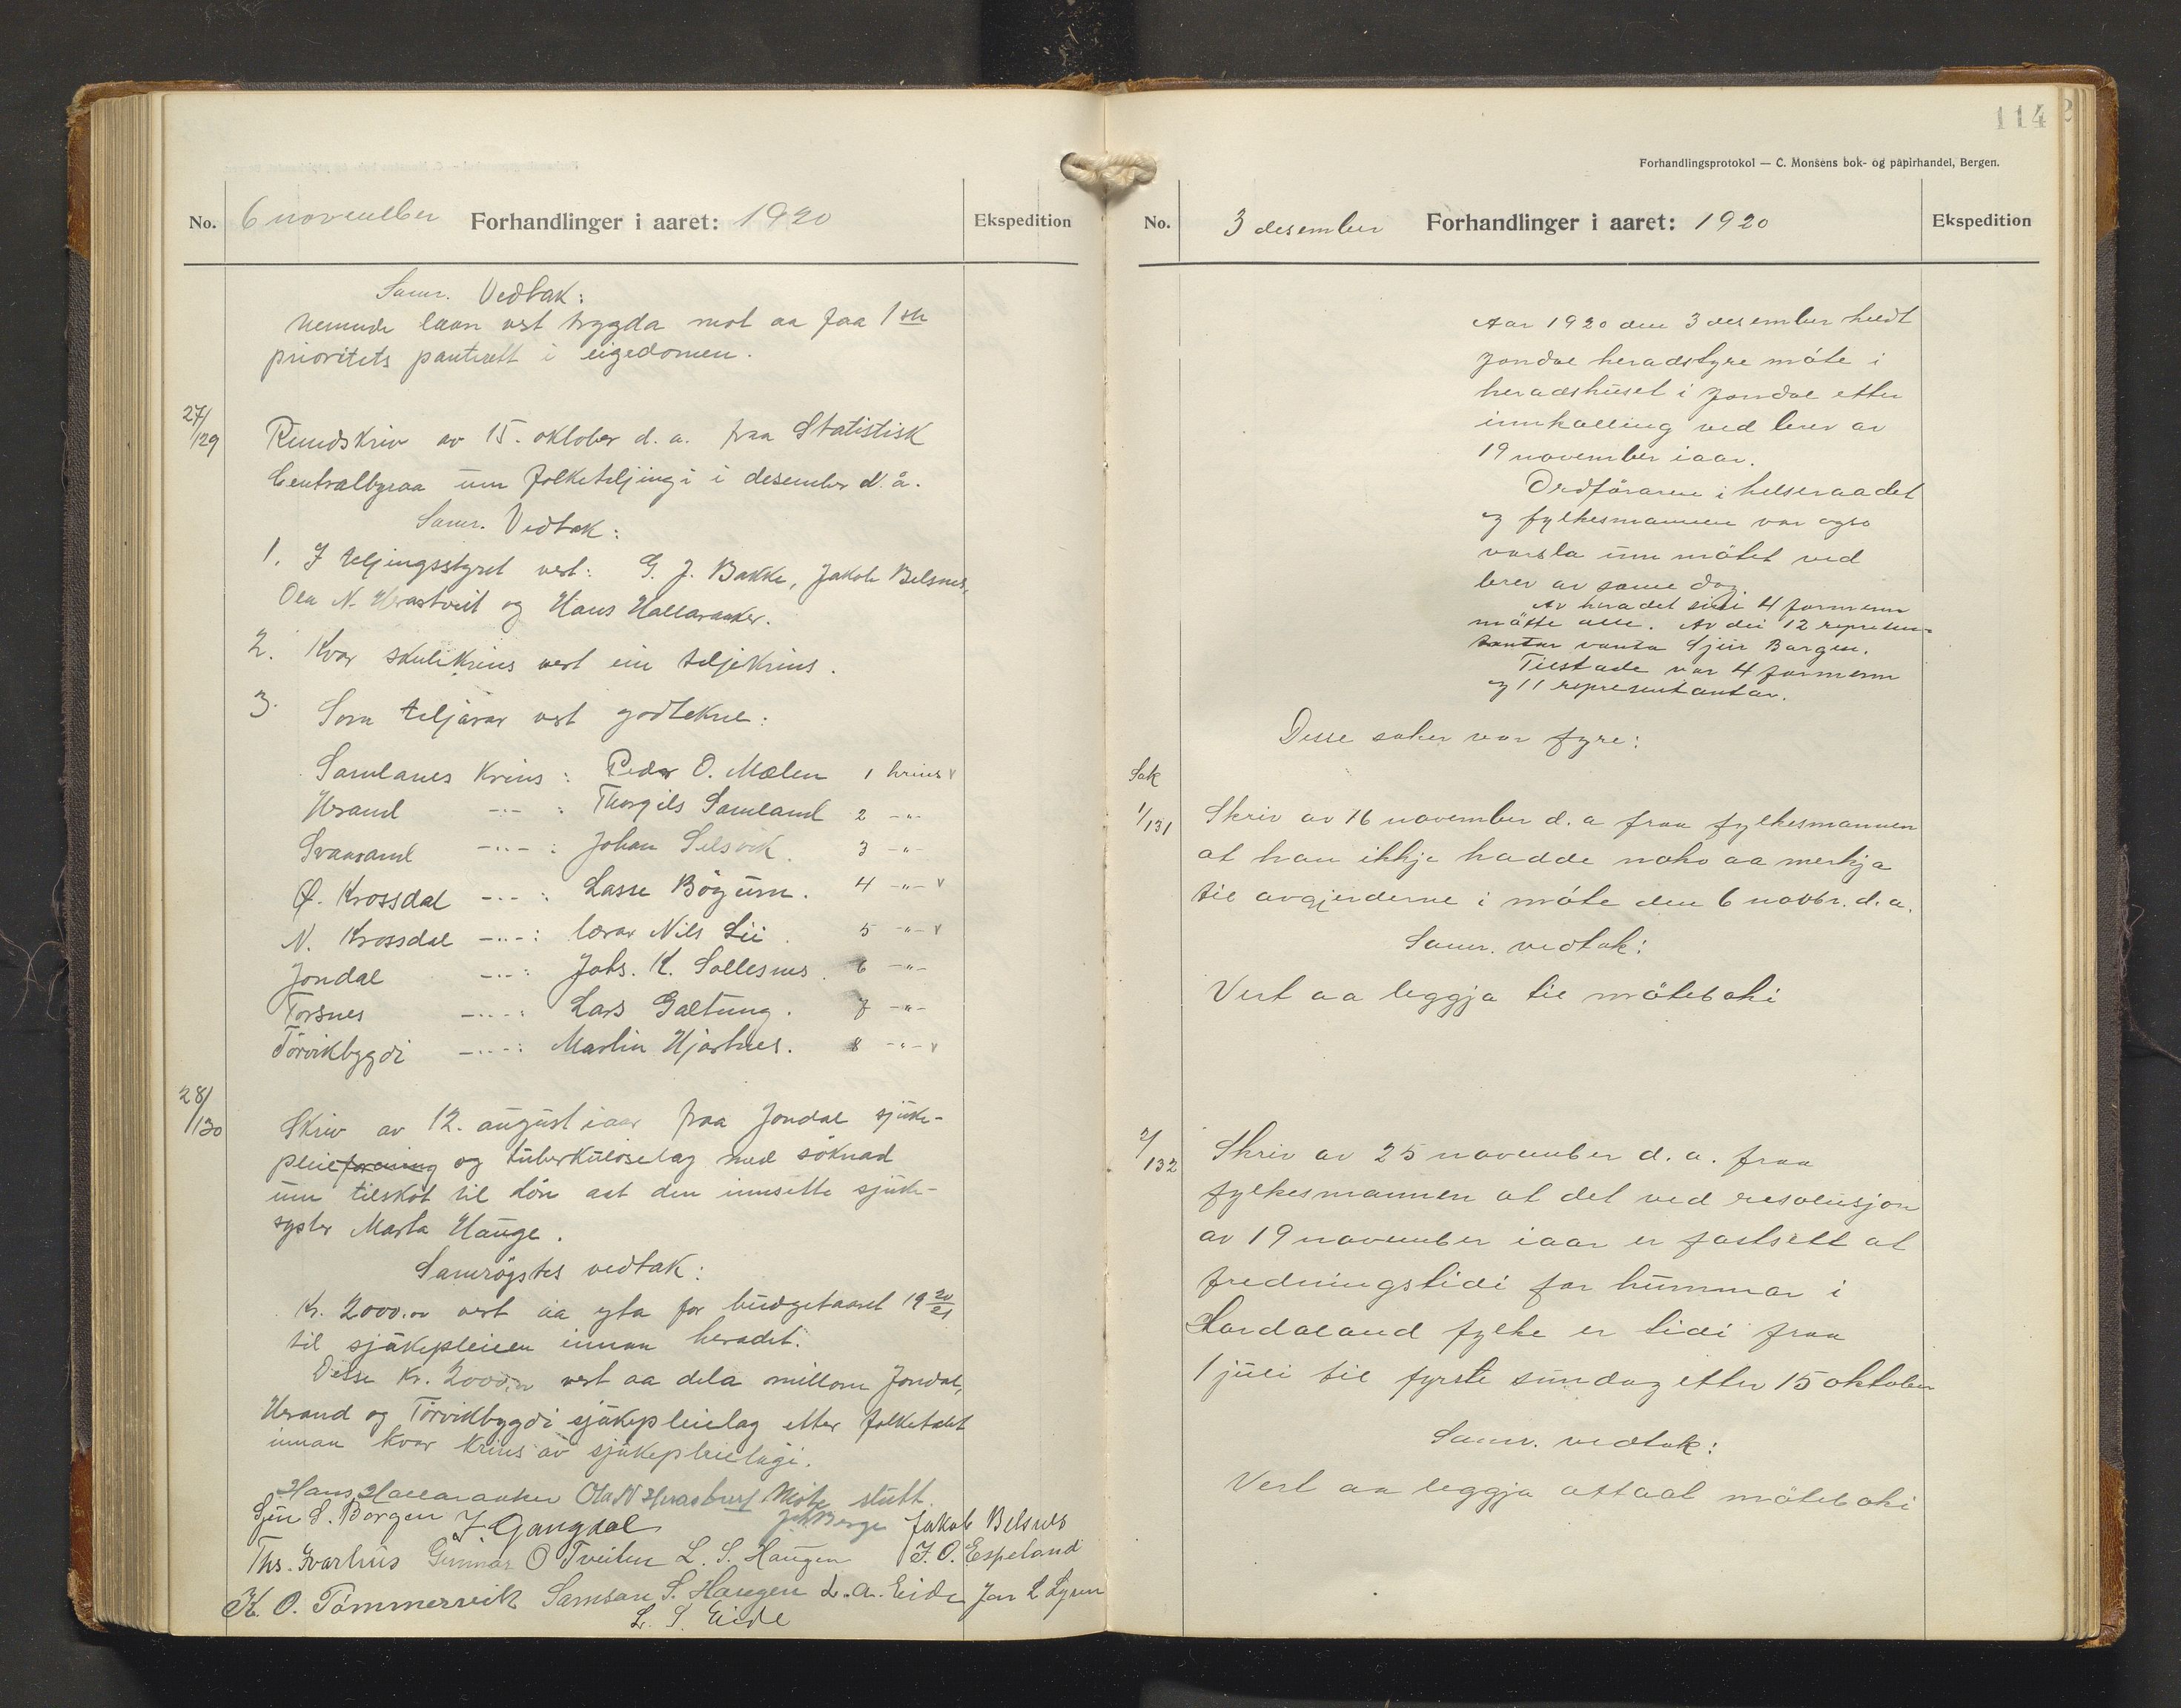 No. 6 november Forhandlinger i aaret: 1920 Ekspedition
Samr. Vedtak:
Nemnde laan vert trygda mot aa faa 1ste
prioritets panterett i eigedomen.
27/129
Rundskriv av 15. oktober d. a. fraa Statistisk
Centralbyraa um folketeljingi i desember d. å.
Samr. Vedtak:
1. I teljingsstyret vert: G. J. Bakke, Jakob Belsnes,
Ola N. Herastveit og Hans Hallaraaker.
2. Kvar skulekrins vert ein teljekrins.
3. Som teljarar vert godtekne:
Samlanes Krins: Peder O. Mælen 1 krins v
Herand -"- : Thorgils Samland 2 -"-
Svaasand -"- : Johan Selsvik. 3 -"-
Ø. Krossdal -"- : Lasse Bögum. 4 -"- v
N. Krossdal -"- : lærar Nils Lii. 5 -"- v
Jondal -"- : Johs. K. Sollesnes. 6 -"-
Torsnes -"- : Lars Galtung. 7 -"-
Törvikbygdi -"- : Martin Hjartnes. 8 -"- v
28/130
Skriv av 12. august iaar fraa Jondal sjuke-
pleieforening og tuberkuloselag med söknad
um tilskot til lön åt den innsette sjuke-
syster Marta Hauge.
Samrøystes vedtak:
Kr. 2000.00 vert aa yta for budgetaaret 1920/21
til sjukepleien innan heradet.
Desse kr. 2000.00 vert aa dela millom Jondal,
Herand og Törvikbygdi sjukepleielag etter folketalet
innan kvar krins av sjukepleielagi.
Möte slutt.
Hans Hallaraaker Ola N Herastveit
Sjur S. Borgen J. Gangdal Joh Berge Jakob Belsnes
Ths. Kvarhus Gunnar O Tveiten L. S. Haugen J. O. Espeland
K. O. Tömmervik Samson S. Haugen L. A. Eide Jon L Lyren
L. S. Eide
114
Forhandlingsprotokol — C. Monsens bok- og papirhandel, Bergen.
No. 3 desember Forhandlinger i aaret: 1920 Ekspedition
Aar 1920 den 3 desember heldt
Jondal heradstyre møte i
heradshuset i Jondal etter
innkalling ved brev av
19 november iaar.
Ordföraren i helseraadet
og fylkesmannen var ogso
varsla um mötet ved
brev av same dag.
Av heradet sine 4 formenn
mötte alle. Av dei 12 represen-
tantar vanta Sjur Borgen.
Tilstade var 4 formenn
og 11 representantar.
Desse saker var fyre:
Sak
1/131
Skriv av 16 november d. a fraa fylkesmannen
at han ikkje hadde noko aa merkja
til avgjerderne i møte den 6 novbr. d. a.
Samr. vedtak:
Vert aa leggja til møteboki
2/132
Skriv av 25 november d. a. fraa
fylkesmannen at det ved resolusjon
av 19 november iaar er fastsett at
fredningstidi for hummar i
Hordaland fylke er tidi fraa
1 juli til fyrste sundag etter 15 oktober
Samr. vedtak:
Vert aa leggja attaat møteboki